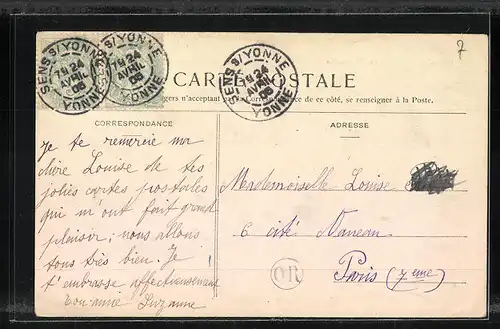 7
SENS S/YONNE
7E 24
AVRIL
08
YONNE
SENS S/YONNE
7E 24
AVRIL
08
YONNE
SENS S/YONNE
7E 24
AVRIL
08
YONNE
CARTE POSTALE
gers n'acceptant pas de ce côté, se renseigner à la Poste.
CORRESPONDANCE
ADRESSE
Je te remercie ma
chère Louise de tes
jolies cartes postales
qui m'ont fait grand
plaisir; nous allons
tous très bien. Je
t'embrasse affectueusement
ton amie Suzanne
Mademoiselle Louise
6 cité Vaneau
Paris (7eme)
OR